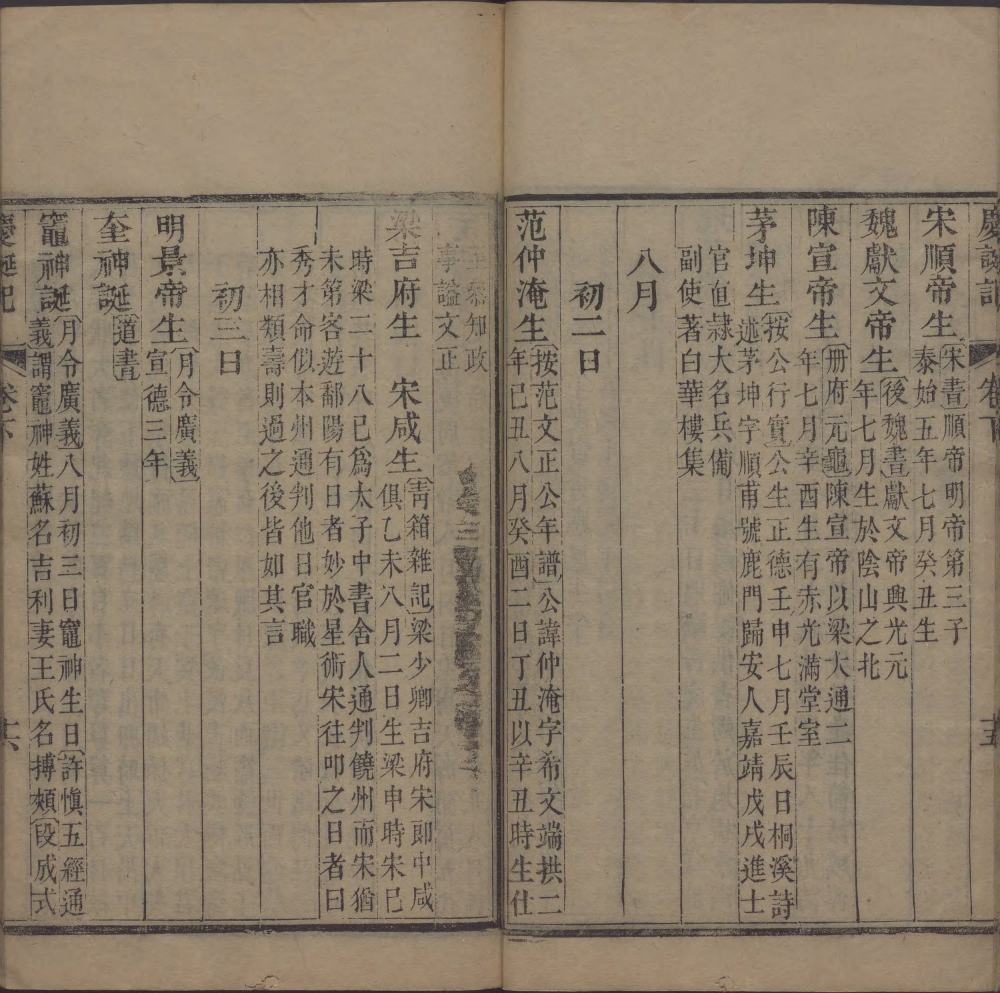 慶誕記 卷下 十五
宋順帝生 宋書順帝明帝第三子
泰始五年七月癸丑生
魏獻文帝生 後魏書獻文帝興光元
年七月生於陰山之北
陳宣帝生 冊府元龜陳宣帝以梁大通二
年七月辛酉生有赤光滿堂室
茅坤生 按公行實公生正德壬申七月壬辰日桐溪詩
述茅坤字順甫號鹿門歸安人嘉靖戊戌進士
官直隷大名兵備
副使著白華樓集
八月
初二日
范仲淹生 按范文正公年譜公諱仲淹字希文端拱二
年已丑八月癸酉二日丁丑以辛丑時生仕
至叅知政
事謚文正
梁吉府生 宋咸生 青箱雜記梁少卿吉府宋郎中咸
俱乙未八月二日生梁申時宋巳
時梁二十八已爲太子中書舍人通判饒州而宋猶
未第客遊鄱陽有日者妙於星術宋往叩之日者曰
秀才命似本州通判他日官職
亦相類壽則過之後皆如其言
初三日
明景帝生 月令廣義
宣德三年
奎神誕 道書
竈神誕 月令廣義八月初三日竈神生日許愼五經通
義謂竈神姓蘇名吉利妻王氏名摶頰段成式
慶誕記 卷下 十六